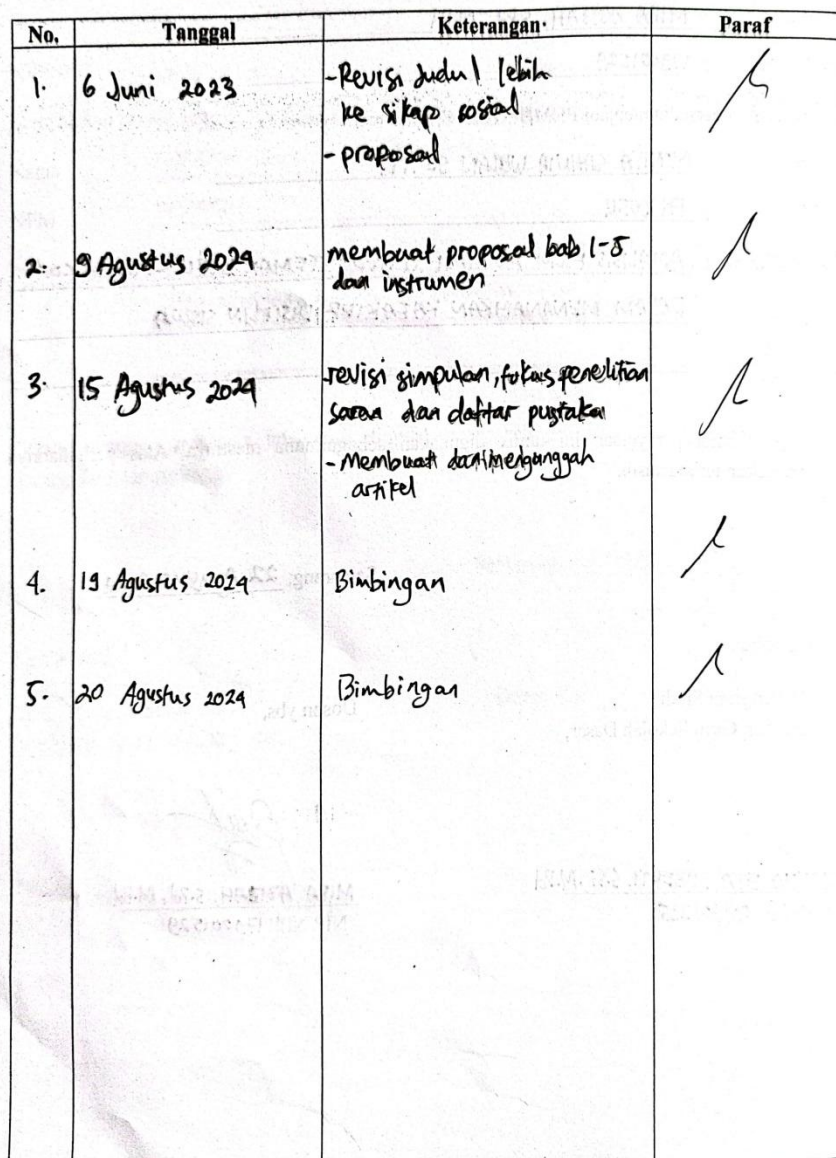 No. Tanggal Keterangan Paraf
1. 6 Juni 2023 - Revisi Judul lebih
ke sikap sosial
- proposal
2. 9 Agustus 2024 membuat proposal bab 1-5
dan instrumen
3. 15 Agustus 2024 - revisi simpulan, fokus penelitian
saran dan daftar pustaka
- Membuat dan mengunggah
artikel
4. 19 Agustus 2024 Bimbingan
5. 20 Agustus 2024 Bimbingan